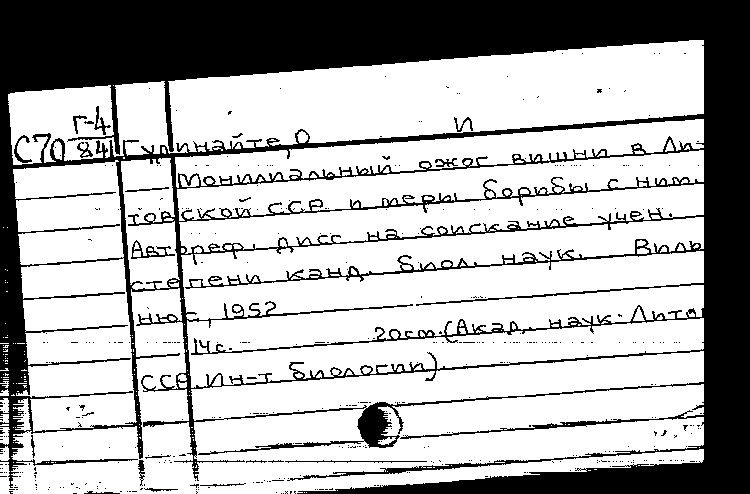 Г-4 И
С70 84 Гудинайте, О
Монилиальный ожог вишни в Ли-
товской ССР и меры борьбы с ним.
Автореф. дисс на соискание учен.
степени канд. биол. наук. Виль
нюс, 1952
14с. 20см. (Акад. наук Литов
ССР. Ин-т биологии).